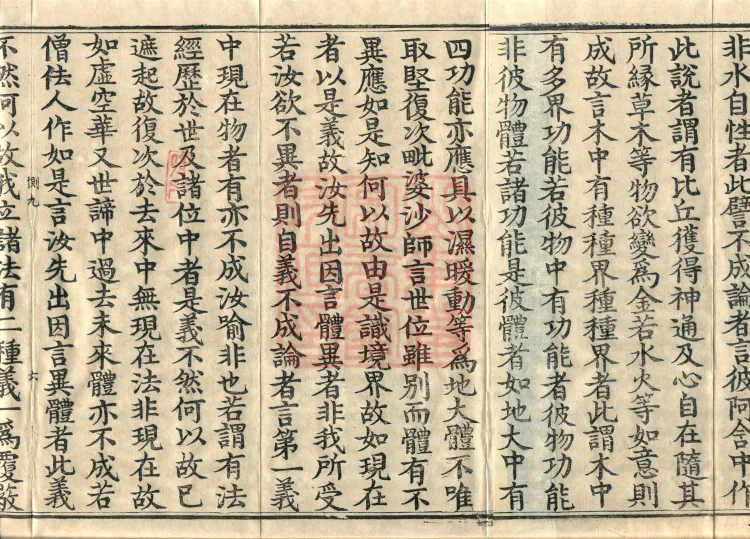 非水自性者此譬不成論者言彼阿含中作
此說者謂有比丘獲得神通及心自在隨其
所緣草木等物欲變為金若水火等如意則
成故言木中有種種界種種界者此謂木中
有多界功能若彼物中有功能者彼物功能
非彼物體若諸功能是彼體者如地大中有
四功能亦應具以濕暖動等為地大體不唯
取堅復次毗婆沙師言世位雖別而體有不
異應如是知何以故由是識境界故如現在
者以是義故汝先出因言體異者非我所受
若汝欲不異者則自義不成論者言第一義
中現在物者有亦不成汝喻非也若謂有法
經歷於世及諸位中者是義不然何以故已
遮起故復次於去來中無現在法非現在故
如虛空華又世諦中過去未來體亦不成若
僧佉人作如是言汝先出因言異體者此義
惻九 六
不然何以故我立諸法有二種義一為覆蔽